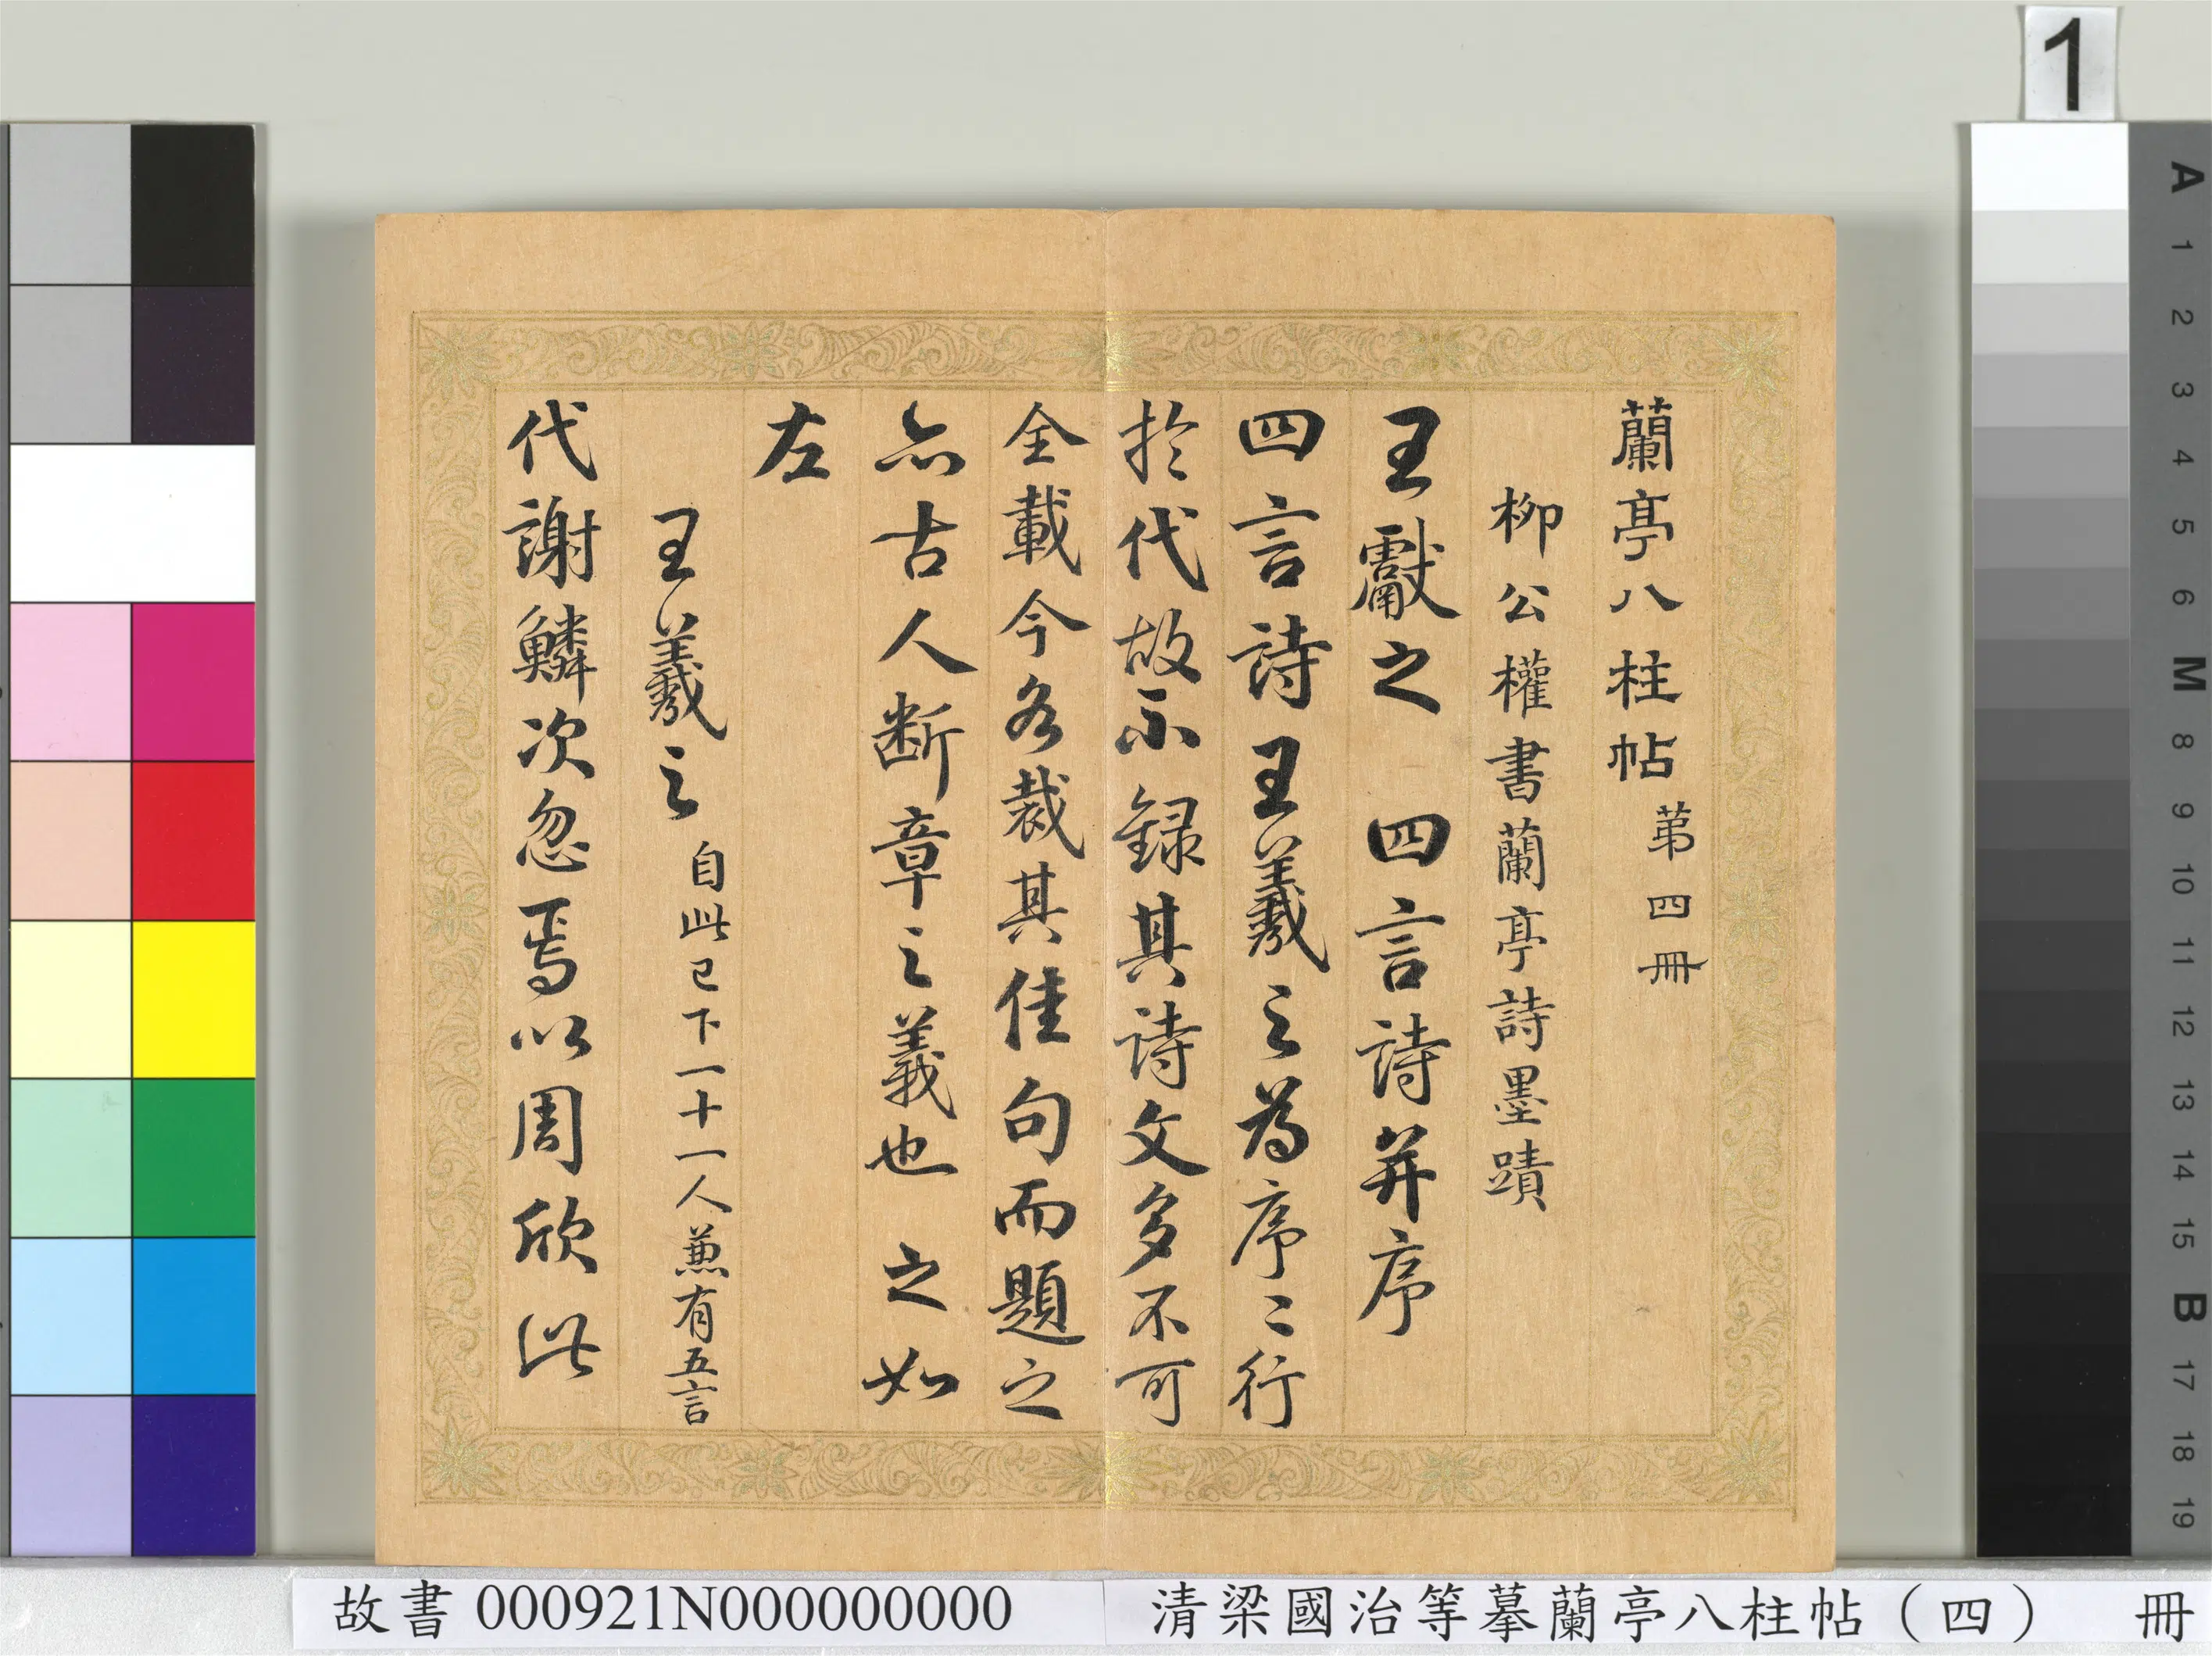 蘭亭八柱帖 第四冊
柳公權書蘭亭詩墨蹟
王獻之 四言詩并序
四言詩王羲之為序序行
於代故不錄其詩文多不可
全載今各裁其佳句而題之
亦古人断章之義也 之如
左
王羲之 自此已下一十一人兼有五言
代謝鱗次忽焉以周欣此
1
A
1
2
3
4
5
6
M
8
9
10
11
12
13
14
15
B
17
18
19
故書 000921N000000000
清梁國治等摹蘭亭八柱帖（四） 冊